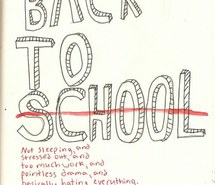 BACK
TO
SCHOOL
Not sleeping, and
stressed out, and
too much work, and
pointless drama, and
basically hating everything.